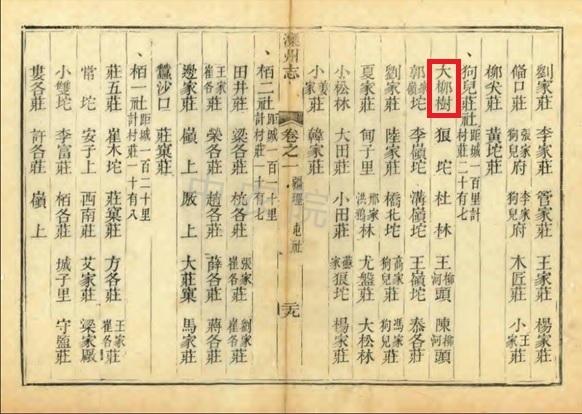 劉家莊 李家莊 管家莊 王家莊 楊家莊
偹口莊 張家狗兒府 李家狗兒府 木匠莊 小王莊
柳夹莊 黃坨莊
、狗兒莊社 距城一百里計村莊二十有七
大柳樹 狼坨 杜林 王柳河頭 陳柳河頭
郭家嶺坨 李嶺坨 溝嶺坨 王嶺坨 泰各莊
劉家莊 陸家莊 橋北坨 高家狗兒莊 馮家狗兒莊
夏家莊 甸子里 邢家洪鴉 尤盤莊 大松林
小松林 大田莊 小田莊 狼坨 楊家莊
小姜家莊 韓家莊
灤州志 卷之一 疆理 屯社 二十九
、栢二社 距城一百二十里計村莊一十有七
田井莊 梁各莊 桃各莊 張家崔各莊 劉家崔各莊
王家崔各莊 榮各莊 趙各莊 薛各莊 蔣各莊
邊家莊 嶺上 廒上 大莊窠 馬家莊
蠶沙口 莊窠莊
、栢一社 距城一百二十里計村莊一十有八
莊五莊 崔木坨 莊窠莊 方各莊
常坨 安子上 西南莊 艾家莊 梁家廒
小雙坨 李富莊 栢各莊 城子里 守盬莊
婁各莊 許各莊 嶺上